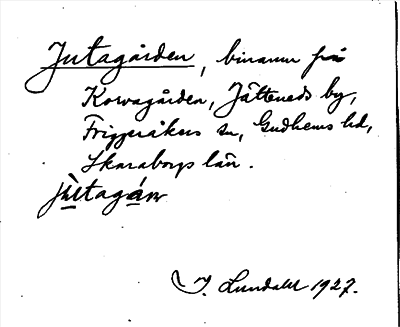 Jutagården, binamn på
Korvagården, Jätteneds by,
Friggeråkers sn, Gudhems hd,
Skaraborgs län.
jùtagáṛ
I. Lundahl 1927.